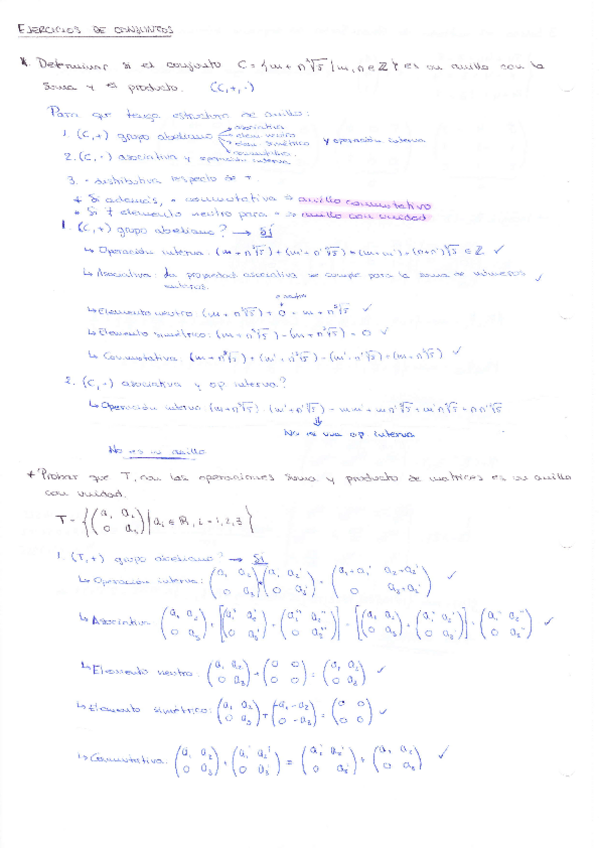 EJERCICIOS DE CONJUNTOS
* Determinar si el conjunto C = {m + n ∛5 | m, n ∈ ℤ} es un anillo con la
suma y el producto. (C, +, ·)
Para que tenga estructura de anillo:
1. (C, +) grupo abeliano asociativa elem. neutro elem. simétrico conmutativa y operación interna
2. (C, ·) asociativa y operación interna
3. · distributiva respecto de +.
* Si además, · conmutativa ⇒ anillo conmutativo
* Si ∃ elemento neutro para · ⇒ anillo con unidad
1. (C, +) grupo abeliano? → Sí
↳ Operación interna: (m + n ∛5) + (m' + n' ∛5) = (m+m') + (n+n') ∛5 ∈ ℤ ✓
↳ Asociativa: La propiedad asociativa se cumple para la suma de números ✓
↳ Elemento neutro: (m + n ∛5) + 0 = m + n ∛5 ✓
↳ Elemento simétrico: (m + n ∛5) - (m + n ∛5) = 0 ✓
↳ Conmutativa: (m + n ∛5) + (m' + n' ∛5) = (m' + n' ∛5) + (m + n ∛5) ✓
2. (C, ·) asociativa y op. interna?
↳ Operación interna: (m + n ∛5) · (m' + n' ∛5) = mm' + mn' ∛5 + m'n ∛5 + nn' ∛5
⇓
No es una op. interna
No es un anillo
* Probar que T, con las operaciones suma y producto de matrices es un anillo
con unidad.
T = {(a₁ a₂ / 0 a₃) | aᵢ ∈ ℝ, i = 1, 2, 3}
1. (T, +) grupo abeliano? → Sí
↳ Operación interna: (a₁ a₂ / 0 a₃) + (a₁' a₂' / 0 a₃') = (a₁+a₁' a₂+a₂' / 0 a₃+a₃') ✓
↳ Asociativa: (a₁ a₂ / 0 a₃) + [(a₁' a₂' / 0 a₃') + (a₁'' a₂'' / 0 a₃'')] = [(a₁ a₂ / 0 a₃) + (a₁' a₂' / 0 a₃')] + (a₁'' a₂'' / 0 a₃'') ✓
↳ Elemento neutro: (a₁ a₂ / 0 a₃) + (0 0 / 0 0) = (a₁ a₂ / 0 a₃) ✓
↳ Elemento simétrico: (a₁ a₂ / 0 a₃) + (-a₁ -a₂ / 0 -a₃) = (0 0 / 0 0) ✓
↳ Conmutativa: (a₁ a₂ / 0 a₃) + (a₁' a₂' / 0 a₃') = (a₁' a₂' / 0 a₃') + (a₁ a₂ / 0 a₃) ✓